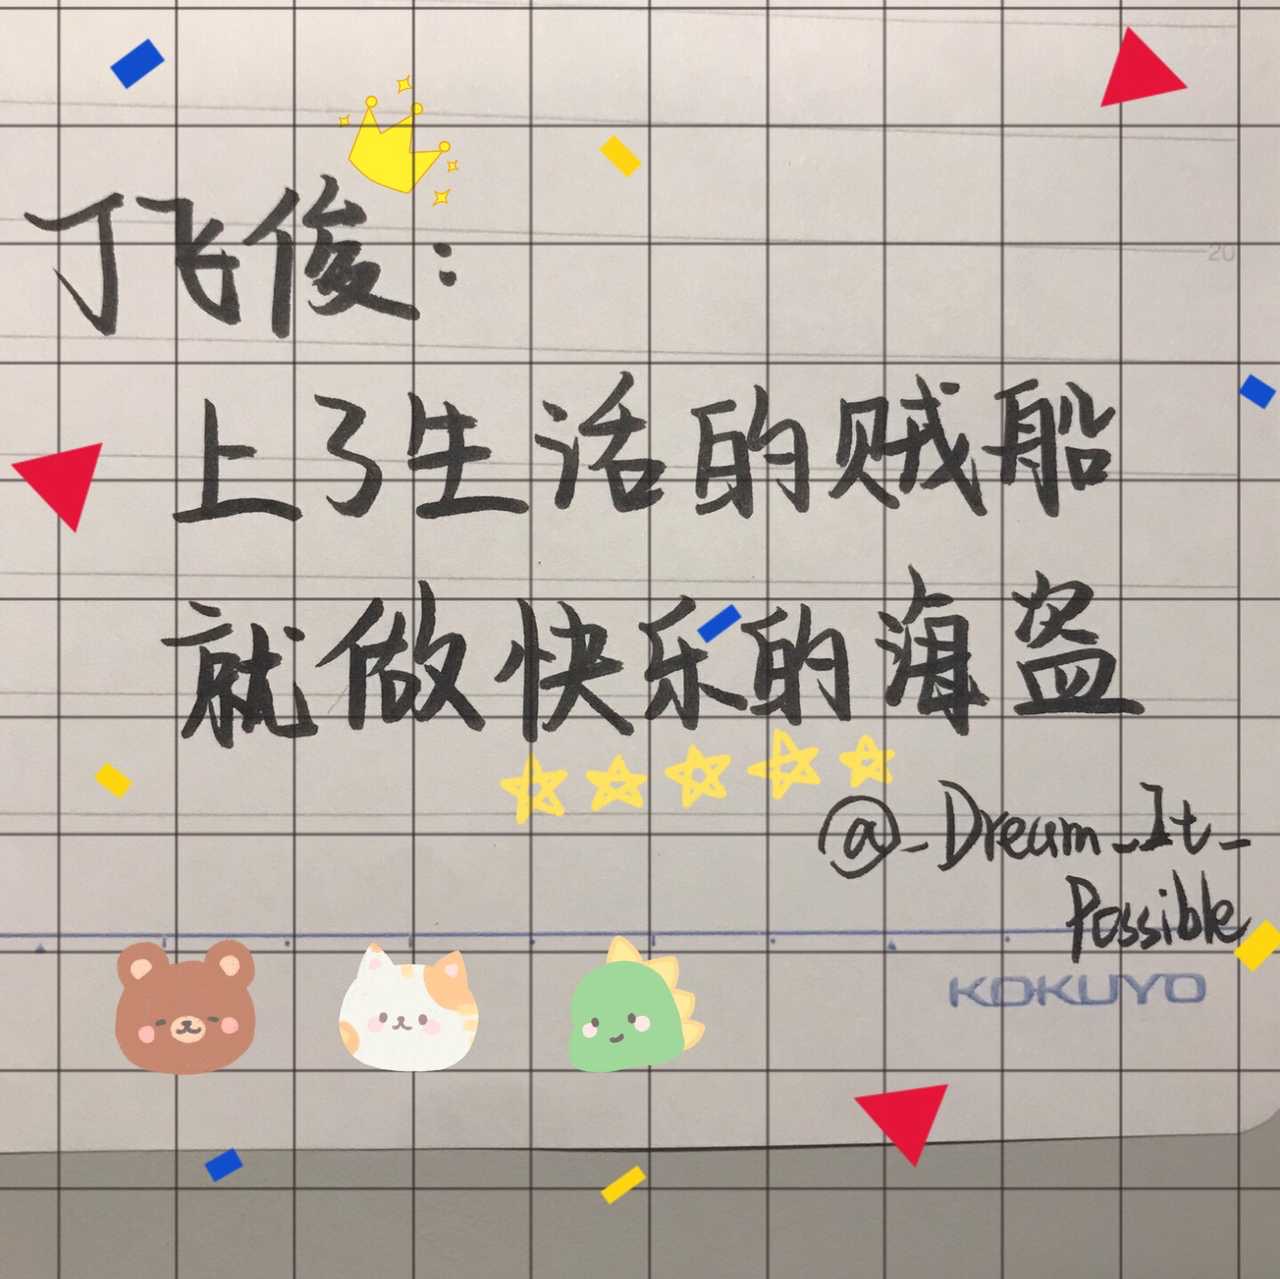 20
丁飞俊：
上了生活的贼船
就做快乐的海盗
@_Dream_It_
Possible
KOKUYO